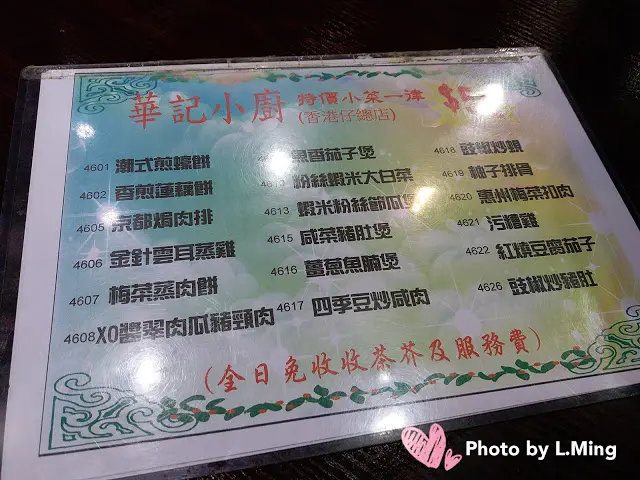 華記小廚 特價小菜一律 $5
(香港仔總店)
4601 潮式煎蠔餅
4602 香煎蓮藕餅
4605 京都焗肉排
4606 金針雲耳蒸雞
4607 梅菜蒸肉餅
4608 XO醬翠肉瓜豬頸肉
魚香茄子煲
粉絲蝦米大白菜
4613 蝦米粉絲節瓜煲
4615 咸菜豬肚煲
4616 薑蔥魚腩煲
4617 四季豆炒咸肉
4618 豉椒炒蜆
4619 柚子排骨
4620 惠州梅菜扣肉
4621 污糟雞
4622 紅燒豆腐茄子
4626 豉椒炒豬肚
(全日免收收茶芥及服務費)
Photo by L.Ming